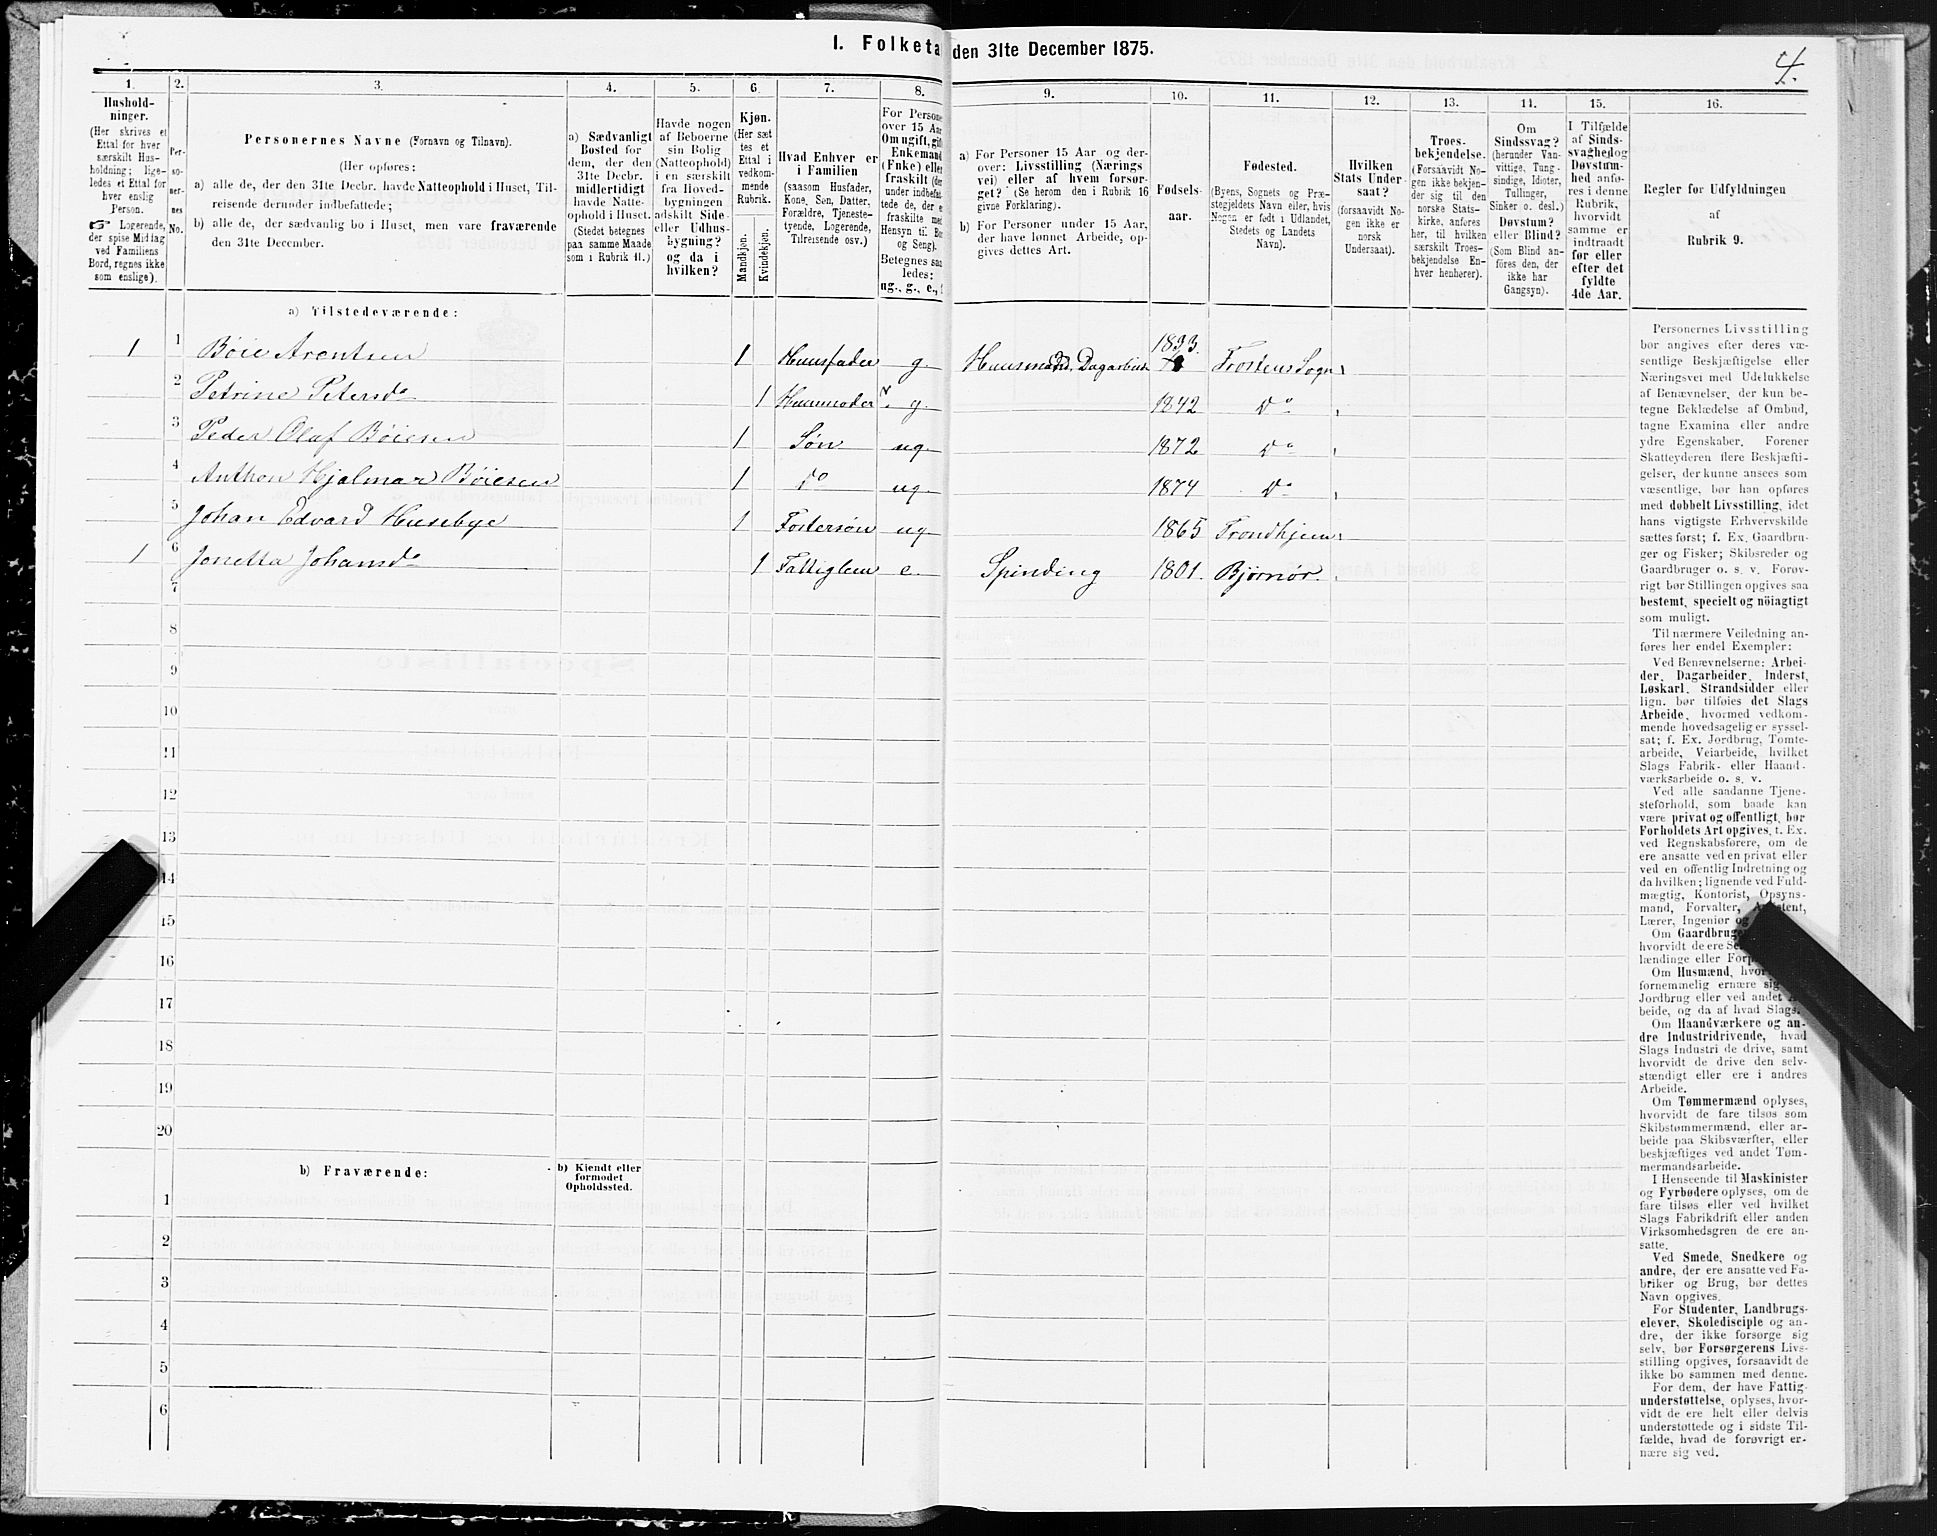 I. Folketa den 31te December 1875.
4.
1.
Hushold-
ninger.
(Her skrives et
Ettal for hver
særskilt Hus-
holdning; lige-
ledes et Ettal for
hver enslig
Person.
Logerende,
der spise Middag
ved Familiens
Bord, regnes ikke
som enslige).
2.
Per-
so-
ner-
nes
No.
3.
Personernes Navne (Fornavn og Tilnavn).
(Her opføres:
a) alle de, der den 31te Decbr. havde Natteophold i Huset, Til-
reisende derunder indbefattede;
b) alle de, der sædvanlig bo i Huset, men vare fraværende
den 31te December.
4.
a) Sædvanligt
Bosted for
dem, der den
31te Decbr.
midlertidigt
havde Natte-
ophold i Huset.
(Stedet betegnes
paa samme Maade
som i Rubrik 11.)
5.
Havde nogen
af Beboerne
sin Bolig
(Natteophold)
i en særskilt
fra Hoved-
bygningen
adskilt Side-
eller Udhus-
bygning?
og da i
hvilken?
6.
Kjøn.
(Her sæt-
tes et
Ettal i
vedkom-
mende
Rubrik.
Mandkjøn.
Kvindekjøn.
7.
Hvad Enhver er
i Familien
(saasom Husfader,
Kone, Søn, Datter,
Forældre, Tjeneste-
tyende, Logerende,
Tilreisende osv.)
8.
For Persone
over 15 Aa
Om ugift, gif
Enkemand
(Enke) elle
fraskilt (de
under indbefat-
tede de, der e
fraskilte me
Hensyn til Bo
og Seng).
Betegnes saa
ledes:
ug., g., e.,
9.
a) For Personer 15 Aar og der-
over: Livsstilling (Nærings-
vei) eller af hvem forsør-
get? (Se herom den i Rubrik 16
givne Forklaring).
b) For Personer under 15 Aar,
der have lønnet Arbeide, op-
gives dettes Art.
10.
Fødsels-
aar.
11.
Fødested.
(Byens, Sognets og Præ-
stegjeldets Navn eller, hvis
Nogen er født i Udlandet,
Stedets og Landets
Navn).
12.
Hvilken
Stats Under-
saat?
(forsaavidt No-
gen ikke er
norsk
Undersaat).
13.
Troes-
bekjendelse.
(Forsaavidt No-
gen ikke bekjen-
der sig til den
norske Stats-
kirke, anføres
her, til hvilken
særskilt Troes-
bekjendelse En-
hver henhører).
14.
Om
Sindssvag?
(herunder Van-
vittige, Tung-
sindige, Idioter,
Tullinger,
Sinker o. desl.)
Døvstum?
eller Blind?
(Som Blind an-
føres den, der
ikke har
Gangsyn).
15.
I Tilfælde
af Sinds-
svaghed og
Døvstum-
hed anfø-
res i denne
Rubrik,
hvorvidt
samme er
indtraadt
før eller
efter det
fyldte
4de Aar.
16.
Regler for Udfyldningen
af
Rubrik 9.
a) Tilstedeværende:
1 1 Bøie Arentsen 1 Huusfader g. Huusmand, Dagarbeider 1833. Frosten Sogn
2 Petrine Petersd. 1 Huusmoder g. 1842 Do
3 Peder Olaf Bøiesen 1 Søn ug. 1872 Do
4 Anthon Hjalmar Bøiesen 1 Do ug. 1874 Do
5 Johan Edvard Husebye 1 Fostersøn ug. 1865 Trondhjem
1 6 Jonetta Johansd. 1 Fattiglem e. Spinding 1801. Bjørnør.
7
8
9
10
11
12
13
14
15
16
17
18
19
20
b) Fraværende:
b) Kjendt eller
formodet
Opholdssted.
1
2
3
4
5
6
Personernes Livsstilling
bør angives efter deres væ-
sentlige Beskjæftigelse eller
Næringsvei med Udelukkelse
af Benævnelser, der kun be-
tegne Beklædelse af Ombud,
tagne Examina eller andre
ydre Egenskaber. Forener
Skatteyderen flere Beskjæfti-
gelser, der kunne ansees som
væsentlige, bør han opføres
med dobbelt Livsstilling, idet
hans vigtigste Erhvervskilde
sættes først; f. Ex. Gaardbru-
ger og Fisker; Skibsreder og
Gaardbruger o. s. v. Forøv-
rigt bør Stillingen opgives saa
bestemt, specielt og nöiagtigt
som muligt.
Til nærmere Veiledning an-
føres her endel Exempler:
Ved Benævnelserne: Arbei-
der, Dagarbeider, Inderst,
Løskarl, Strandsidder eller
lign. bør tilføies det Slags
Arbeide, hvormed vedkom-
mende hovedsagelig er syssel-
sat; f. Ex. Jordbrug, Tomte-
arbeide, Veiarbeide, hvilket
Slags Fabrik- eller Haand-
værksarbeide o. s. v.
Ved alle saadanne Tjene-
steforhold, som baade kan
være privat og offentligt, bør
Forholdets Art opgives, t. Ex.
ved Regnskabsførere, om de
ere ansatte ved en privat eller
ved en offentlig Indretning og
da hvilken; lignende ved Fuld-
mægtig, Kontorist, Opsyns-
mand, Forvalter,
Lærer, Ingeniør
Om Gaardbruge
hvorvidt de ere
lændinge eller
Om Husmænd,
fornemmelig ernære sig
Jordbrug eller ved andet
beide, og da af hvad Slags.
Om Haandværkere og an-
dre Industridrivende, hvad
Slags Industri de drive, samt
hvorvidt de drive den selv-
stændigt eller ere i andres
Arbeide.
Om Tømmermænd oplyses,
hvorvidt de fare tilsøs som
Skibstømmermænd, eller ar-
beide paa Skibsværfter, eller
beskjæftiges ved andet Tøm-
mermandsarbeide.
I Henseende til Maskinister
og Fyrbødere oplyses, om de
fare tilsøs eller ved hvilket
Slags Fabrikdrift eller anden
Virksomhedsgren de ere an-
satte.
Ved Smede, Snedkere og
andre, der ere ansatte ved Fa-
briker og Brug, bør dettes
Navn opgives.
For Studenter, Landbrugs-
elever, Skoledisciple og an-
dre, der ikke forsørge sig
selv, bør Forsørgerens Livs-
stilling opgives, forsaavidt de
ikke bo sammen med denne.
For dem, der have Fattig-
understøttelse, oplyses, hvor-
vidt de ere helt eller delvis
understøttede og i sidste Til-
fælde, hvad de forøvrigt er-
nære sig ved.